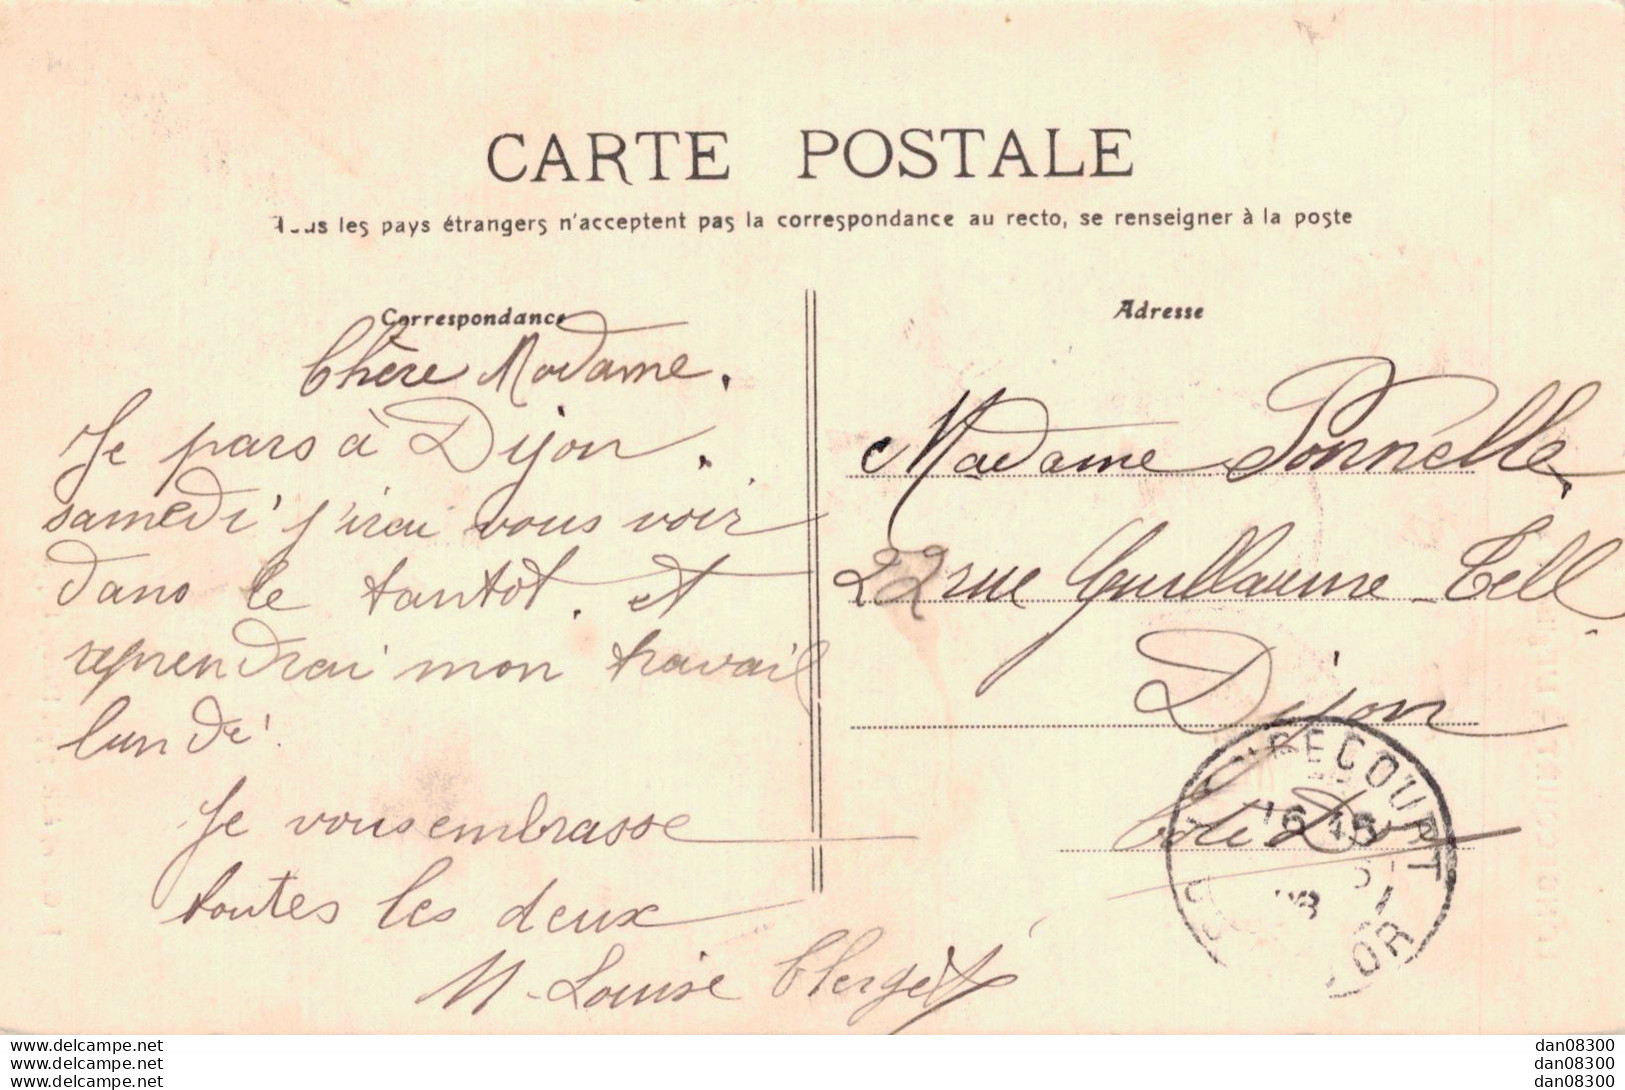 CARTE POSTALE
Tous les pays étrangers n'acceptent pas la correspondance au recto, se renseigner à la poste
Correspondance
Chère Madame.
Je pars à Dijon.
samedi j'irai vous voir
dans le tantot. et
reprendrai mon travail
lundi
Je vous embrasse
toutes les deux
M. Louise Clerget
Adresse
Madame Ponnelle
22 rue Guillaume-Tell
Dijon
Côte D'or
ECOURT
OR
www.delcampe.net
www.delcampe.net
www.delcampe.net
dan08300
dan08300
dan08300